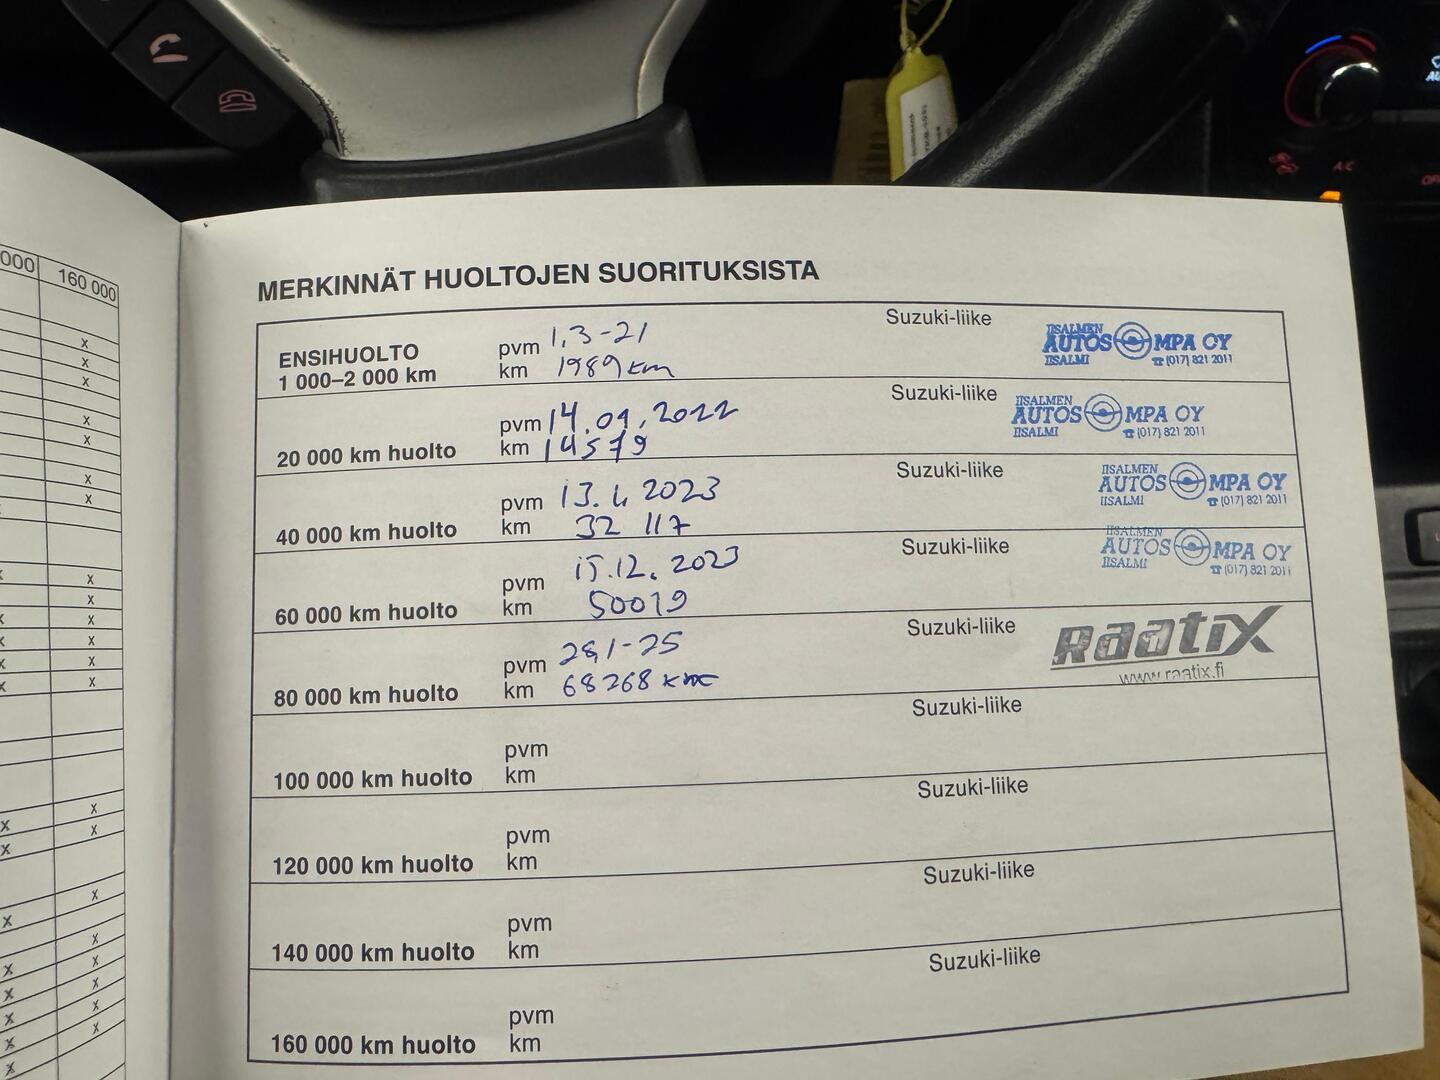 000 160 000
MERKINNÄT HUOLTOJEN SUORITUKSISTA
ENSIHUOLTO
1 000–2 000 km
pvm 1.3-21
km 1989 km
Suzuki-liike
IISALMEN
AUTOS MPA OY
IISALMI ☎ (017) 821 2011
20 000 km huolto
pvm 14.01.2022
km 14579
Suzuki-liike
IISALMEN
AUTOS MPA OY
IISALMI ☎ (017) 821 2011
40 000 km huolto
pvm 13.1. 2023
km 32 117
Suzuki-liike
IISALMEN
AUTOS MPA OY
IISALMI ☎ (017) 821 2011
60 000 km huolto
pvm 15.12. 2023
km 50019
Suzuki-liike
IISALMEN
AUTOS MPA OY
IISALMI ☎ (017) 821 2011
80 000 km huolto
pvm 28.1-25
km 68268 km
Suzuki-liike
Raatix
www.raatix.fi
100 000 km huolto
pvm
km
Suzuki-liike
120 000 km huolto
pvm
km
Suzuki-liike
140 000 km huolto
pvm
km
Suzuki-liike
160 000 km huolto
pvm
km
Suzuki-liike
A/C